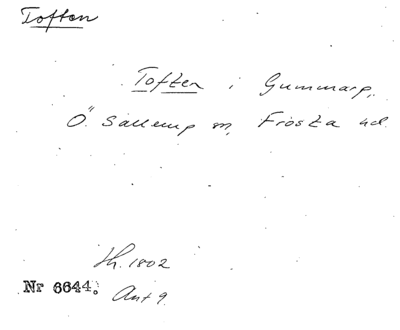 Toften
Toften i Gummarp,
Ö. Sallerup sn, Frosta hd.
Sh. 1802
Nr 6644. Akt 9